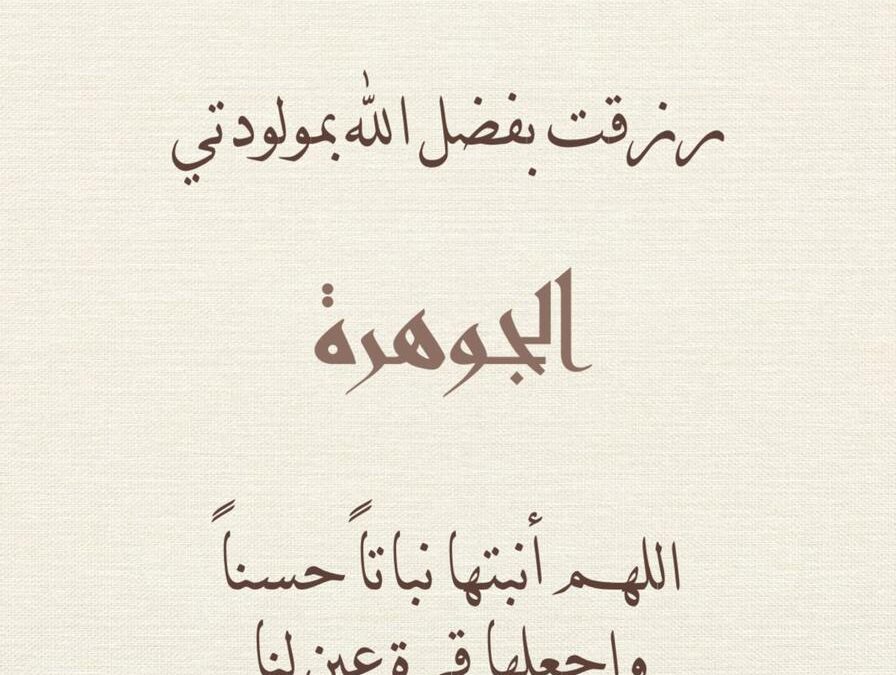 رزقت بفضل الله بمولودتي
الجوهرة
اللهم أنبتها نباتاً حسناً
واجعلها قرة عين لنا